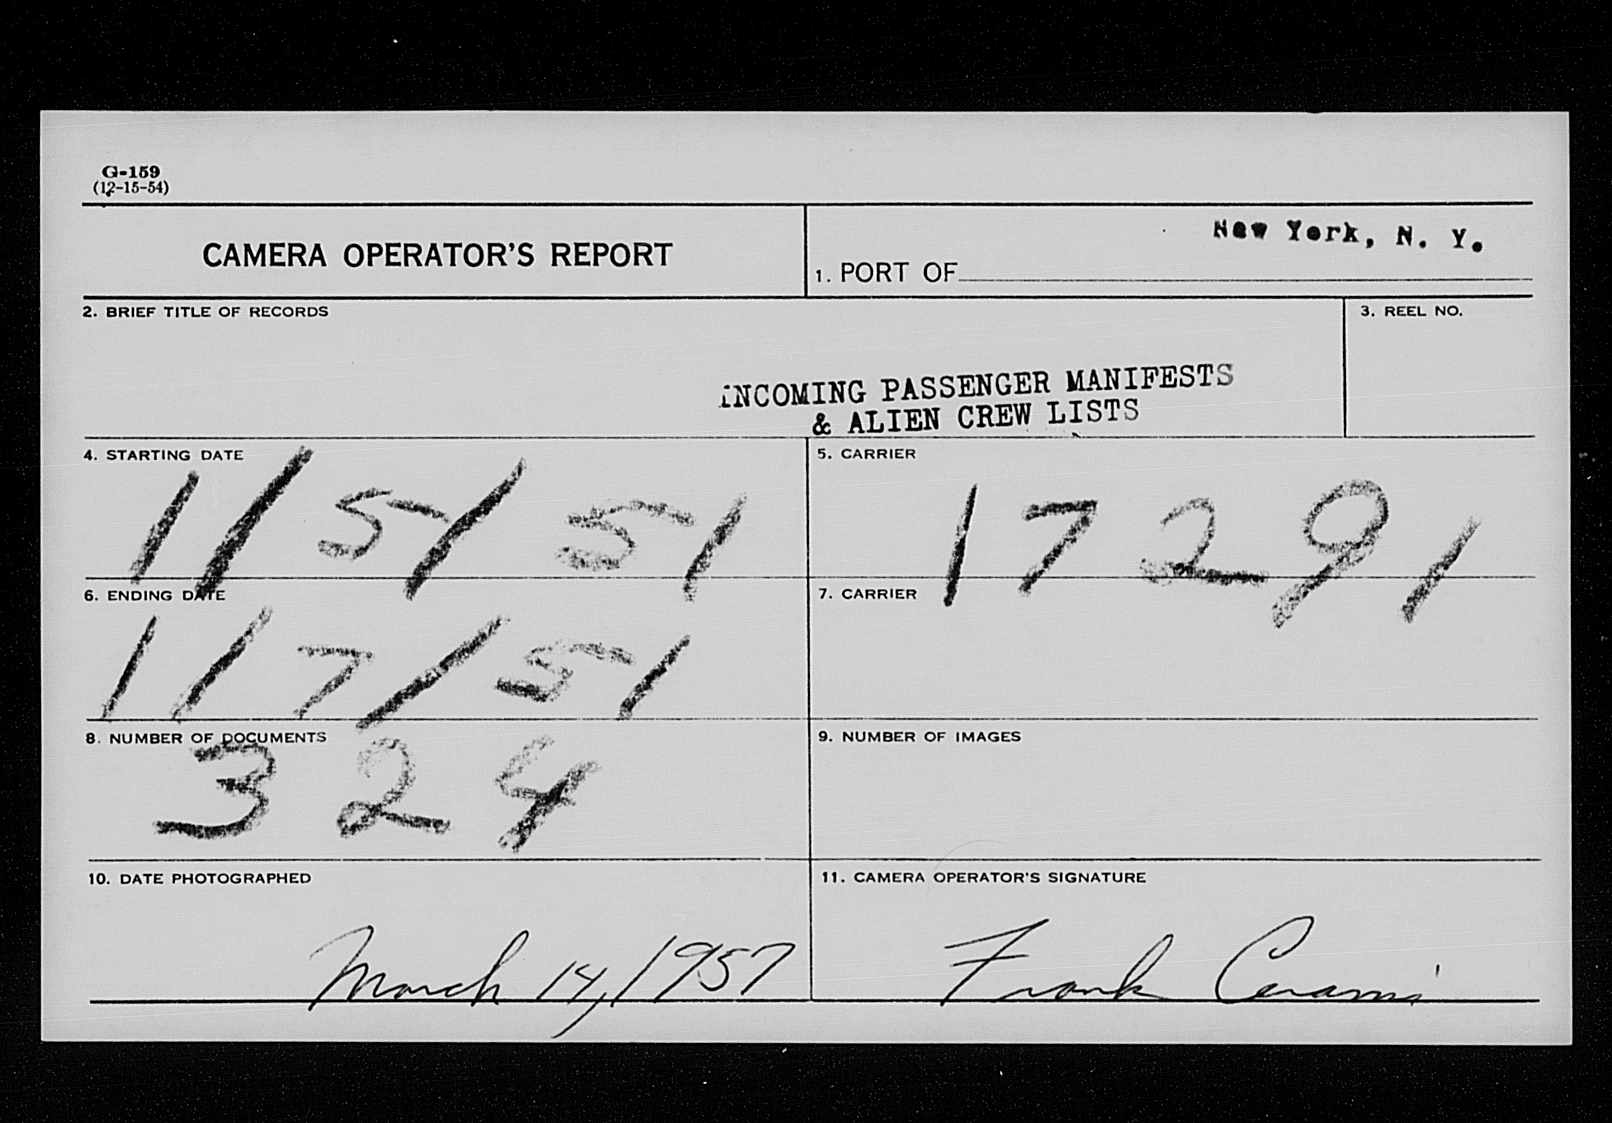 G-159
(12-15-54)
CAMERA OPERATOR'S REPORT
New York, N. Y.
1. PORT OF
2. BRIEF TITLE OF RECORDS
3. REEL NO.
INCOMING PASSENGER MANIFESTS
& ALIEN CREW LISTS
4. STARTING DATE
1/5/51
5. CARRIER
17291
6. ENDING DATE
1/7/51
7. CARRIER
8. NUMBER OF DOCUMENTS
324
9. NUMBER OF IMAGES
10. DATE PHOTOGRAPHED
March 14, 1957
11. CAMERA OPERATOR'S SIGNATURE
Frank